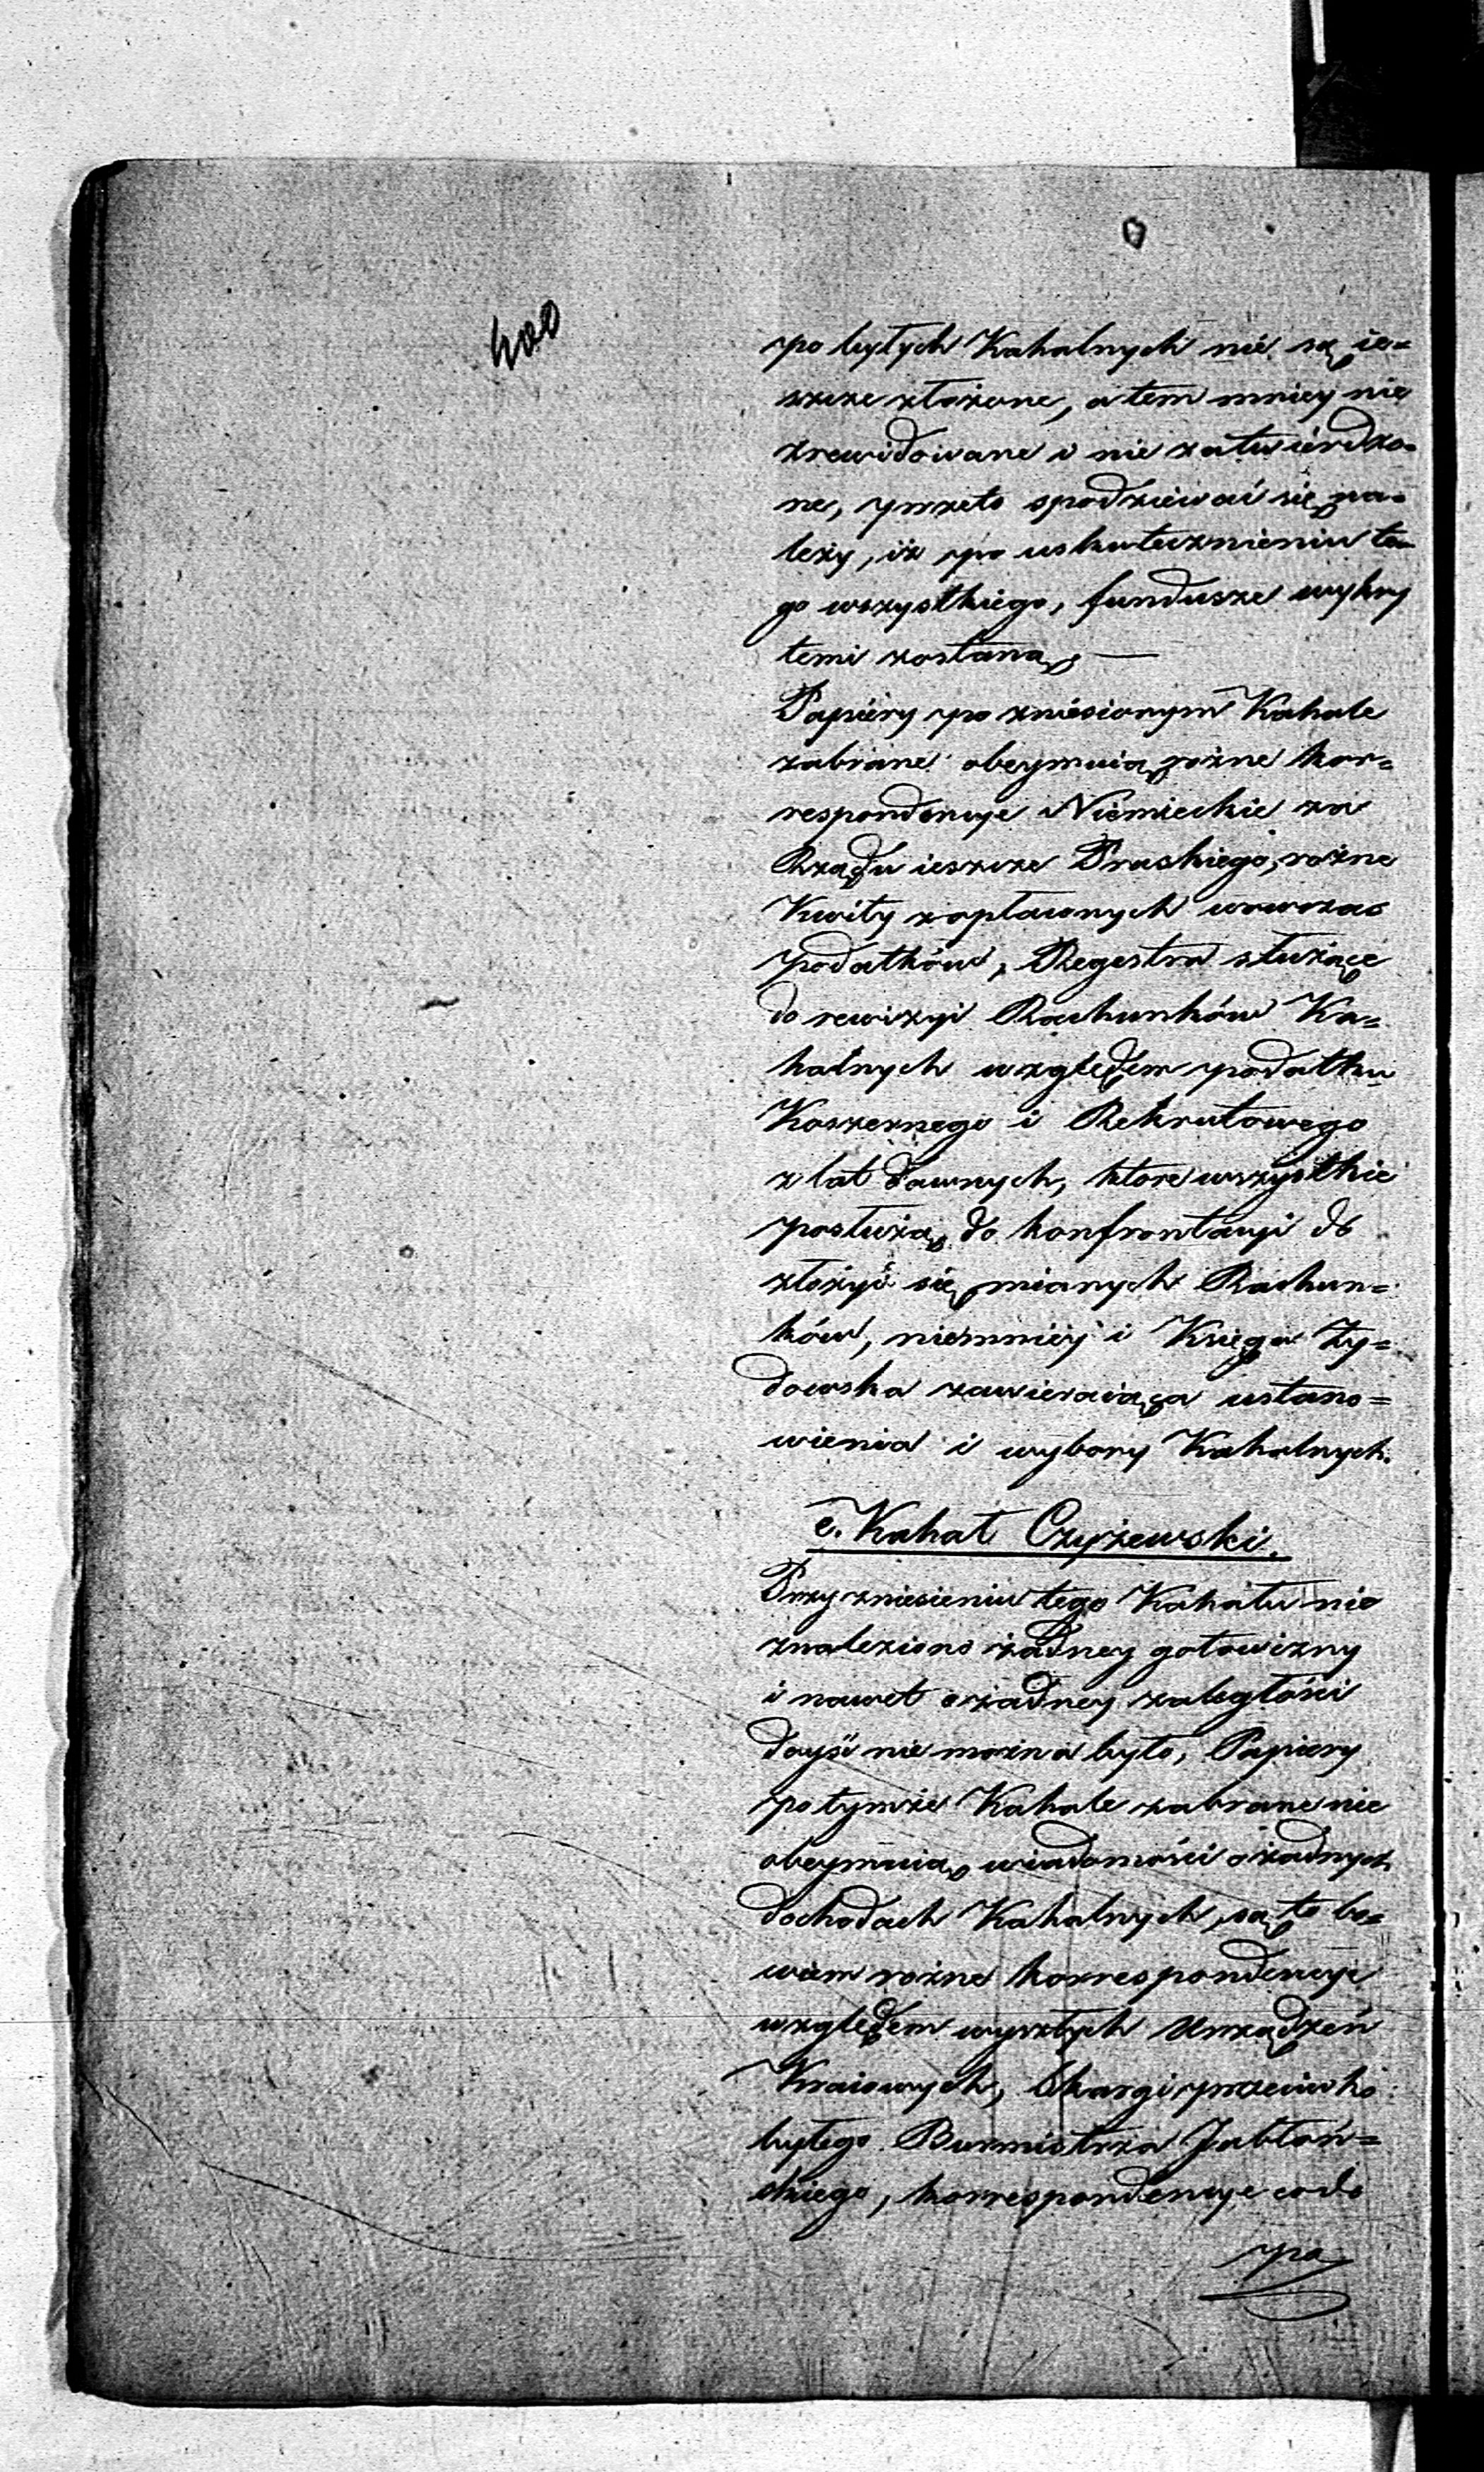 400
po byłych Kahalnych nie są ie=
szcze złożone, a tem mniey nie
zrewidowane i nie zatwierdzo=
ne, przeto spodziewać się na=
leży, iż po uskutecznieniu te=
go wszystkiego, fundusze wykry
temi zostaną. —
Papiéry po zniesionym Kahale
zabrane obeymuią rożne kor=
respondencye Niemieckie za
Rządu ieszcze Pruskiego, rożne
Kwity z opłaconych wowczas
podatków, Regestra służące
do rewizyi Rachunków Ka=
halnych względem podatku
Koszernego i Rekrutowego
z lat dawnych, ktore wszystkie
posłużą do konfrontacyi do
złożyć się mianych Rachun=
ków, niemniéy i Księga Ży=
dowska zawieraiąca ustano=
wienia i wybory Kahalnych.
e. Kahał Czyżewski.
Przy zniesieniu tego Kahału nie
znaleziono żadney gotowizny
i nawet o żadney zaległości
doyść nie można było, Papiery
po tymże Kahale zabrane nie
obeymuią wiadomości o żadnych
dochodach Kahalnych, są to bo=
wiem rożne korrespondencye
względem wyszłych Urządzeń
Kraiowych, Skargi przeciwko
byłego Burmistrza Jabłoń=
skiego, korrespondencye co do
po